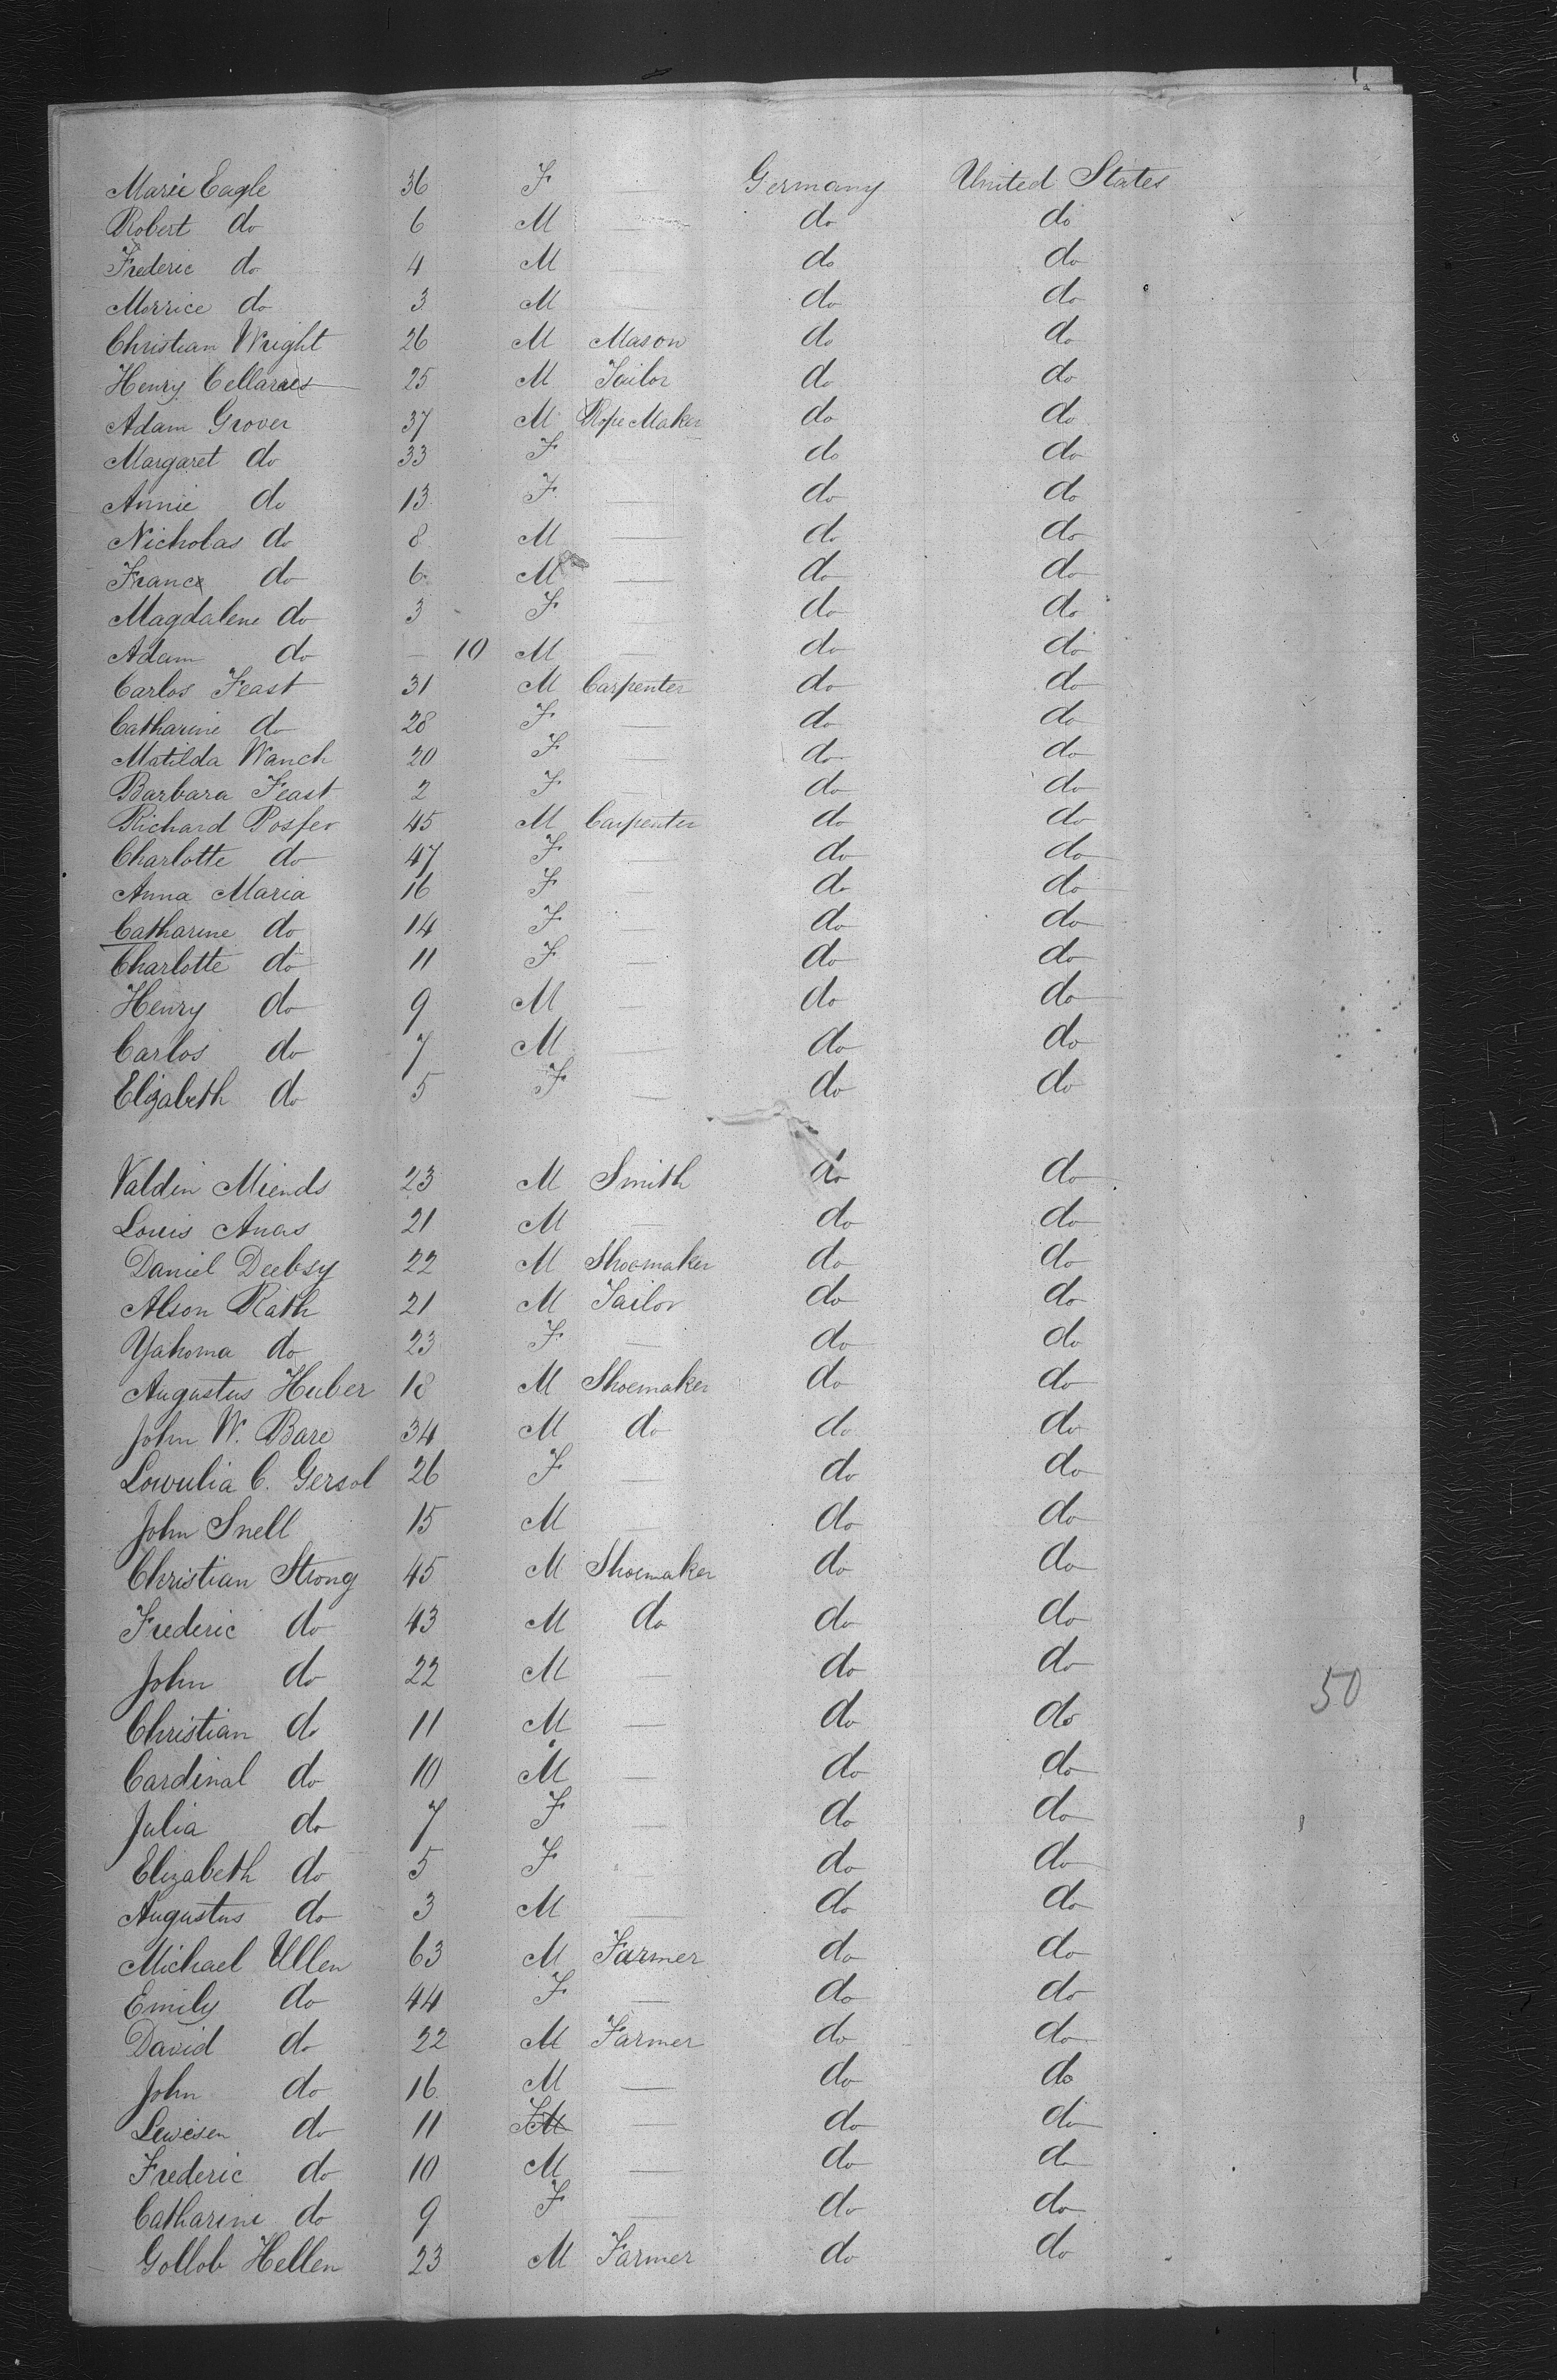 Marie Eagle 36 F — Germany United States
Robert do 6 M — do do
Frederic do 4 M — do do
Morrice do 3 M — do do
Christian Wright 26 M Mason do do
Henry 25 M Tailor do do
Adam Grover 37 M Rope Maker do do
Margaret do 33 F do do
Annie do 13 F — do do
Nicholas do 8 M — do do
Franc do 6 M — do do
Magdalene do 3 F — do do
Adam do — 10 M — do do
Carlos Feast 31 M Carpenter do do
Catharine do 28 F — do do
Matilda Wanch 20 F — do do
Barbara Feast 2 F — do do
Richard Posfer 45 M Carpenter do do
Charlotte do 47 F — do do
Anna Maria 16 F — do do
Catharine do 14 F — do do
Charlotte do 11 F — do do
Henry do 9 M — do do
Carlos do 7 M — do do
Elizabeth do 5 F — do do
Valdin Miends 23 M Smith do do
Louis Anas 21 M — do do
Daniel Deebsy 22 M Shoemaker do do
Alson Rath 21 M Tailor do do
Yahoma do 23 F — do do
Augustus Huber 18 M Shoemaker do do
John W. Bare 34 M do do do
Lowulia C. Gersol 26 F — do do
John Snell 15 M — do do
Christian Strong 45 M Shoemaker do do
Frederic do 43 M do do do
John do 22 M — do do
50
Christian do 11 M — do do
Cardinal do 10 M — do do
Julia do 7 F — do do
Elizabeth do 5 F — do do
Augustus do 3 M — do do
Michael Ullen 63 M Farmer do do
Emily do 44 F — do do
David do 22 M Farmer do do
John do 16 M — do do
Lewisen do 11 F — do do
Frederic do 10 M — do do
Catharine do 9 F — do do
Gollob Hellen 23 M Farmer do do